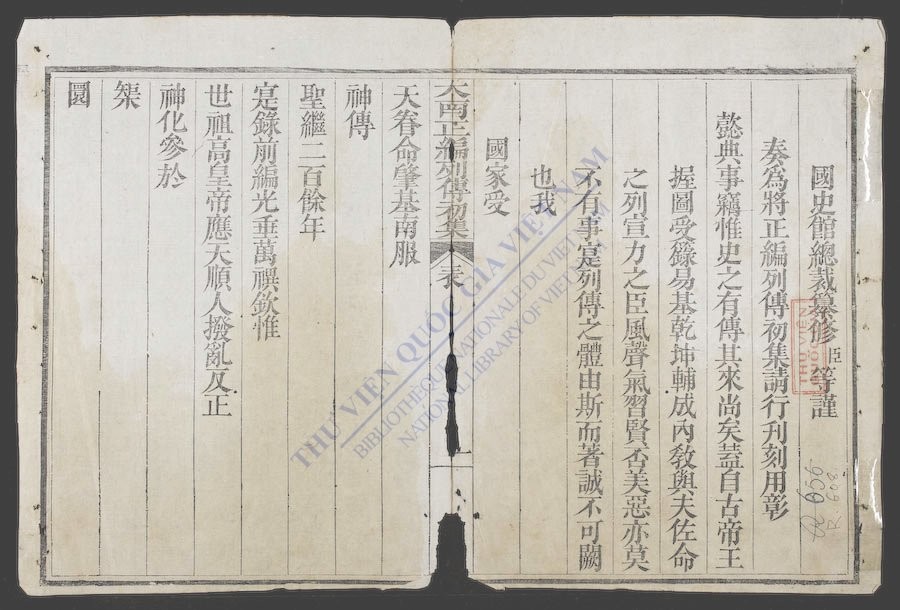 國史館總裁纂修臣等謹
奏爲將正編列傳初集請行刊刻用彰
懿典事竊惟史之有傳其來尚矣蓋自古帝王
握圖受籙易基乾坤輔成內敎與夫佐命
之列宣力之臣風聲氣習賢否美惡亦莫
不有事寔列傳之體由斯而著誠不可闕
也我
國家受
大南正編列傳初集 表 一
天眷命肇基南服
神傳
聖繼二百餘年
寔錄前編光垂萬禩欽惟
世祖高皇帝應天順人撥亂反正
神化參於
榘
圜
THƯ VIỆN QUỐC GIA VIỆT NAM
BIBLIOTHÈQUE NATIONALE DU VIETNAM
NATIONAL LIBRARY OF VIETNAM
R.603